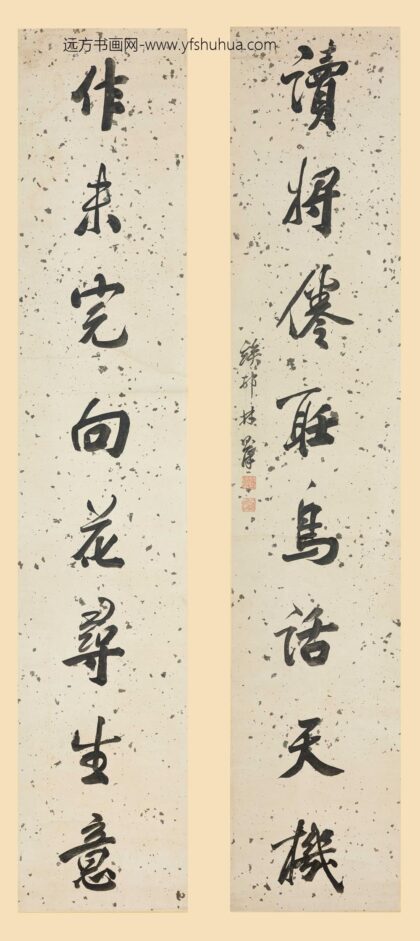 远方书画网-www.yfshuhua.com
讀將倦聽鳥話天機
作未完向花尋生意